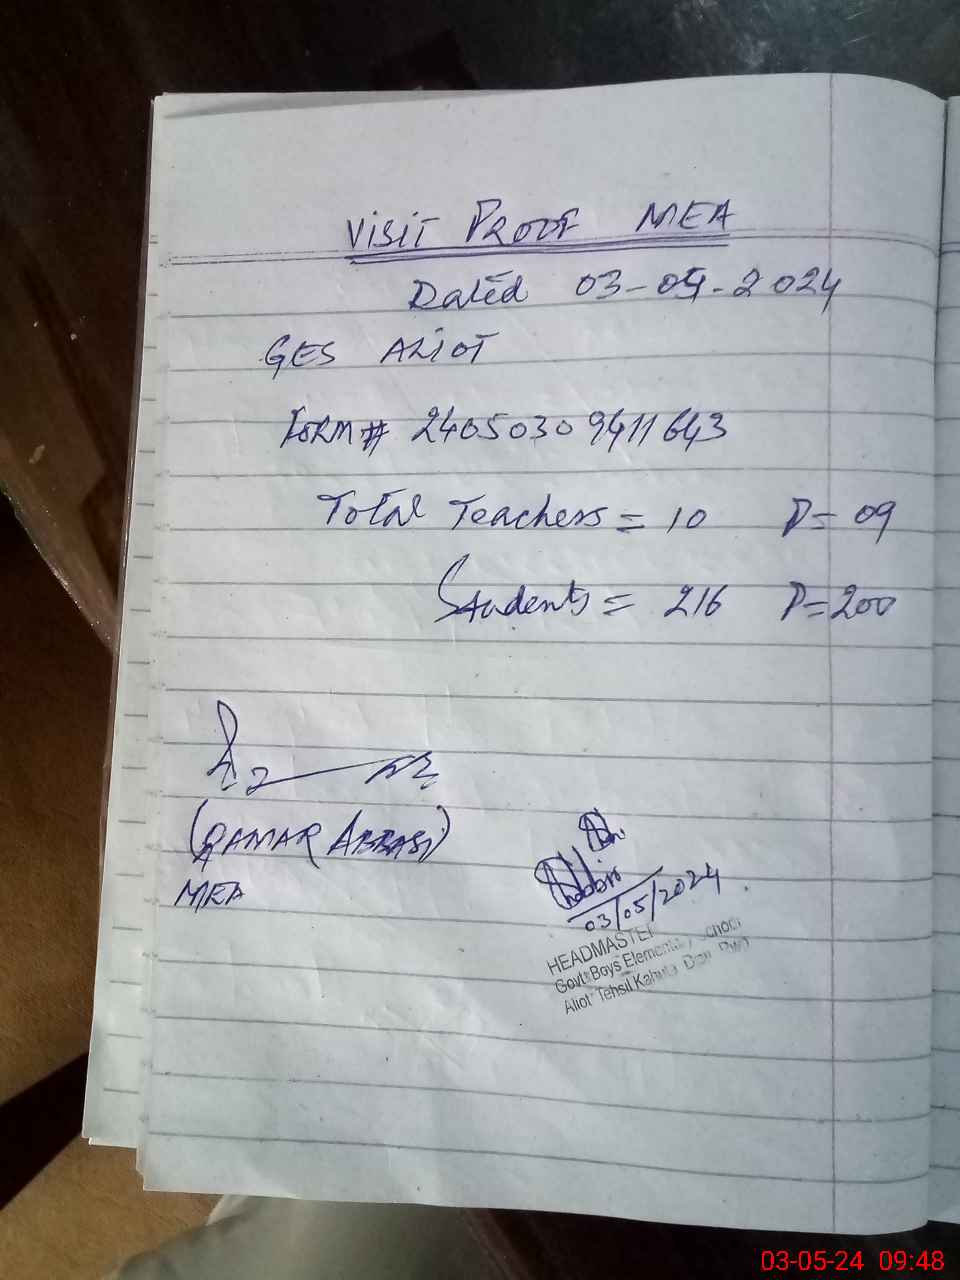 VISIT PROOF MEA
Dated 03-05-2024
GES ALIOT
FORM # 24050309411643
Total Teachers = 10 P= 09
Students = 216 P=200
(QAMAR ABBASI)
MEA
03/05/2024
HEADMASTER
Govt: Boys Elementary School
Aliot Tehsil Kahuta Distt Rwp
03-05-24 09:48